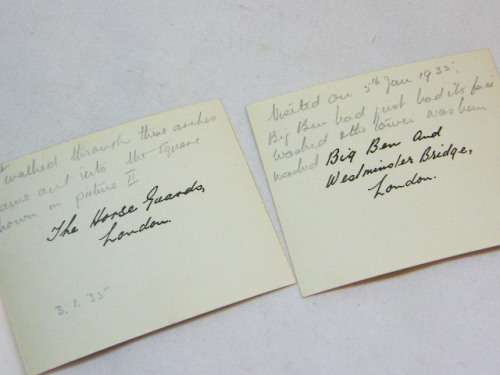 walked through these arches
came out into the Square
shown in picture II
The Horse Guards,
London.
3.1.35
Visited on 5th Jan 1935.
Big Ben had just had its face
washed & the tower was being
washed
Big Ben And
Westminster Bridge,
London.